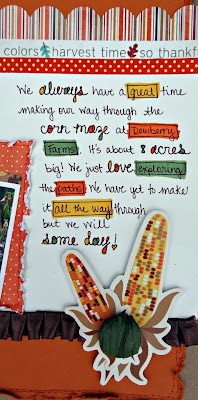 colors harvest time so thankf
We always have a great time
making our way through the
corn maze at Dewberry
Farms. It's about 8 acres
big! We just love exploring
the paths! We have yet to make
it all the way through
but we will
some day!